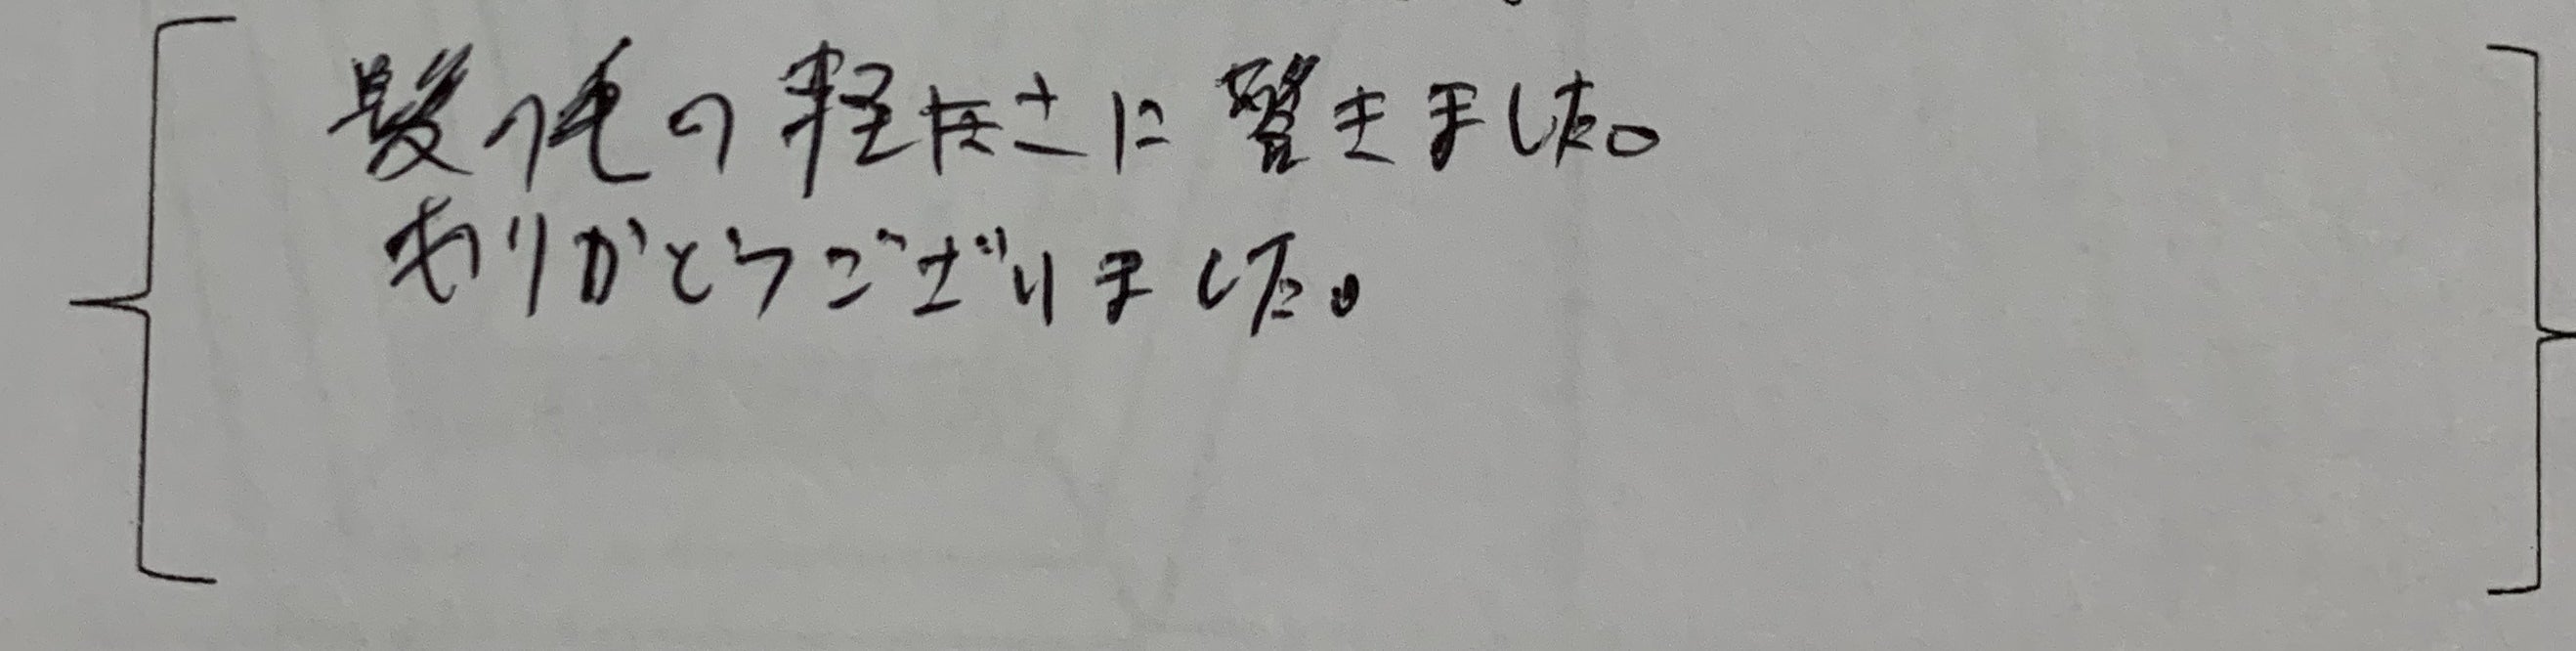 髪の毛の軽さに驚きました。
ありがとうございました。